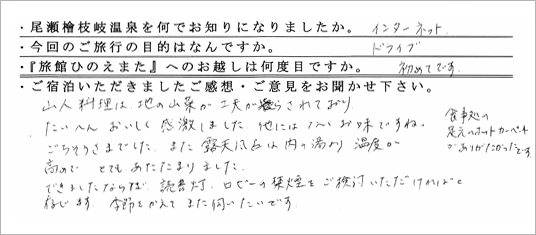 ・尾瀬檜枝岐温泉を何でお知りになりましたか。 インターネット
・今回のご旅行の目的はなんですか。 ドライブ
・『旅館ひのえまた』へのお越しは何度目ですか。 初めてです。
・ご宿泊いただきましたご感想・ご意見をお聞かせ下さい。
山人料理は、地の山菜が工夫が凝らされており
たいへんおいしく感激しました。他にはないお味ですね。
ごちそうさまでした。また露天風呂は内の湯より温度が
高めでとてもあたたまりました。
できましたならば、読書灯、ロビーの禁煙をご検討いただければと
存じます 季節をかえてまた伺いたいです。
食事処の
足元のホットカーペット
がありがたかったです